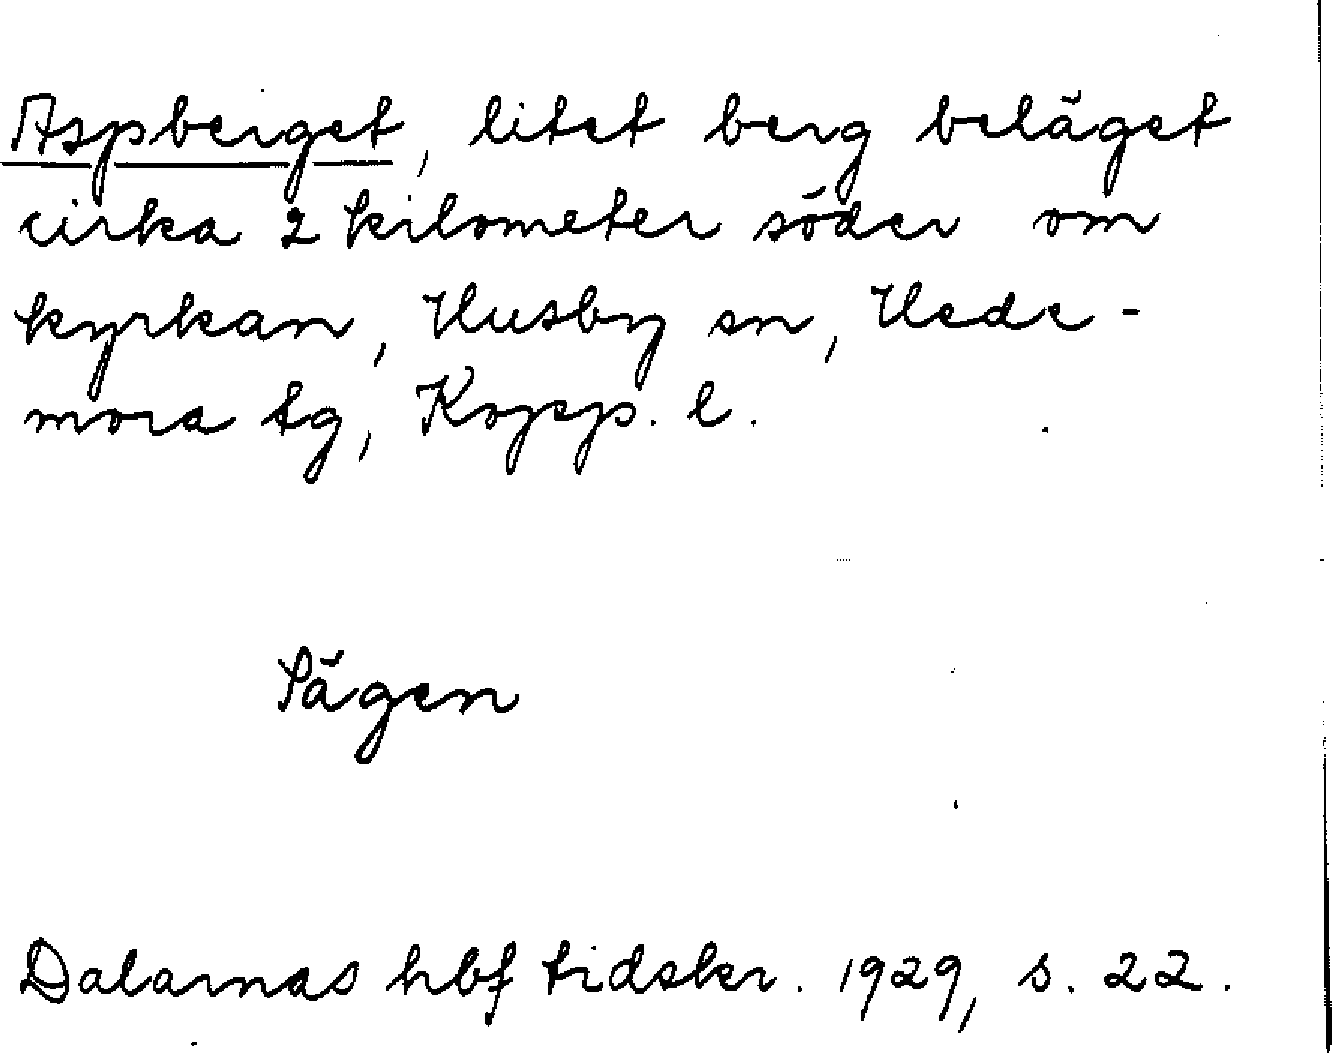 Aspberget, litet berg beläget
cirka 2 kilometer söder om
kyrkan, Husby sn, Hede-
mora tg, Kopp. l.
Sägen
Dalarnas hbf tidskr. 1929, s. 22.